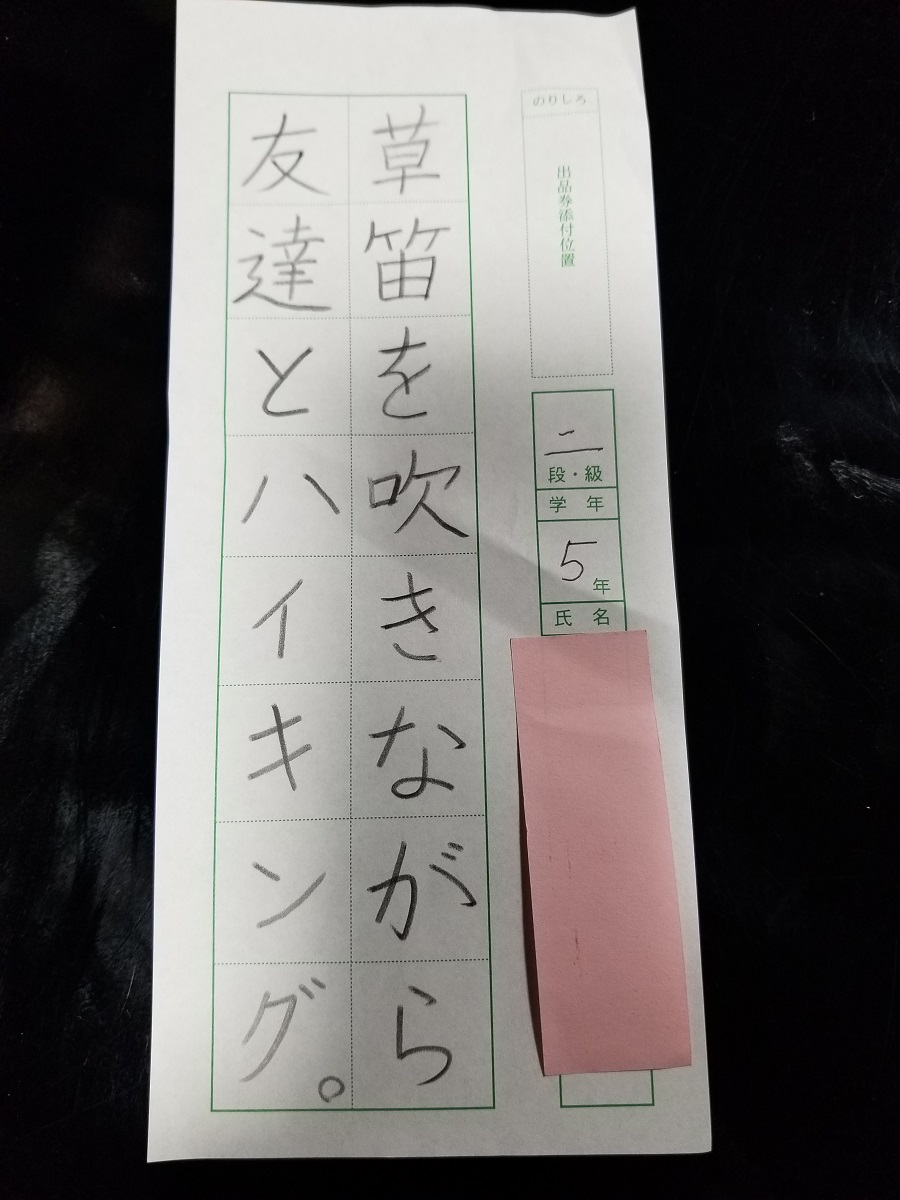 のりしろ
出品券添付位置
二
段・級
学年
5年
氏名
草笛を吹きながら
友達とハイキング。